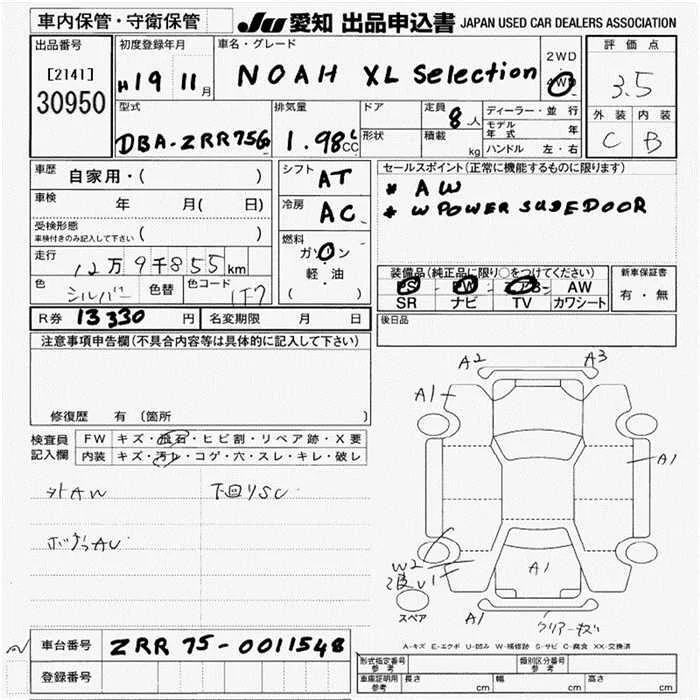 車内保管・守衛保管
JU 愛知 出品申込書 JAPAN USED CAR DEALERS ASSOCIATION
出品番号
[2141]
30950
初度登録年月
H19 11月
車名・グレード
NOAH XL Selection
2WD
4WD
評価点
3.5
外装 内装
C B
型式
DBA-ZRR75G
排気量
1.98 L CC
ドア
形状
定員 8人
積載 kg
ディーラー・並行
モデル年式 年
ハンドル 左・右
車歴 自家用・( )
車検 年 月( 日)
受検形態
車検付きのみ記入して下さい ( )
走行 12万9千855km
色 シルバー 色替 色コード 1F7
シフト AT
冷房 AC
燃料
ガソリン
軽・油
( )
セールスポイント(正常に機能するものに限ります)
* AW
装備品(純正品に限り○をつけてください)
PS PW AW
SR ナビ TV カワシート
新車保証書
有・無
後日品
R券 13330 円 名変期限 月 日
注意事項申告欄(不具合内容等は具体的に記入して下さい)
修復歴 有(箇所 )
検査員記入欄
FW キズ・飛石・ヒビ割・リペア跡・X要
内装 キズ・汚レ・コゲ・穴・スレ・キレ・破レ
外AW 下回りSC
A2 A3
A1
A1
W2
A1
A1
スペア
A-キズ E-エクボ U-凹み W-補修跡 S-サビ C-腐食 XX-交換済
車台番号 ZRR75-0011548
登録番号
形式指定番号 参考 類別区分番号 参考
車庫証明用 参考 長さ cm 幅 cm 高さ cm